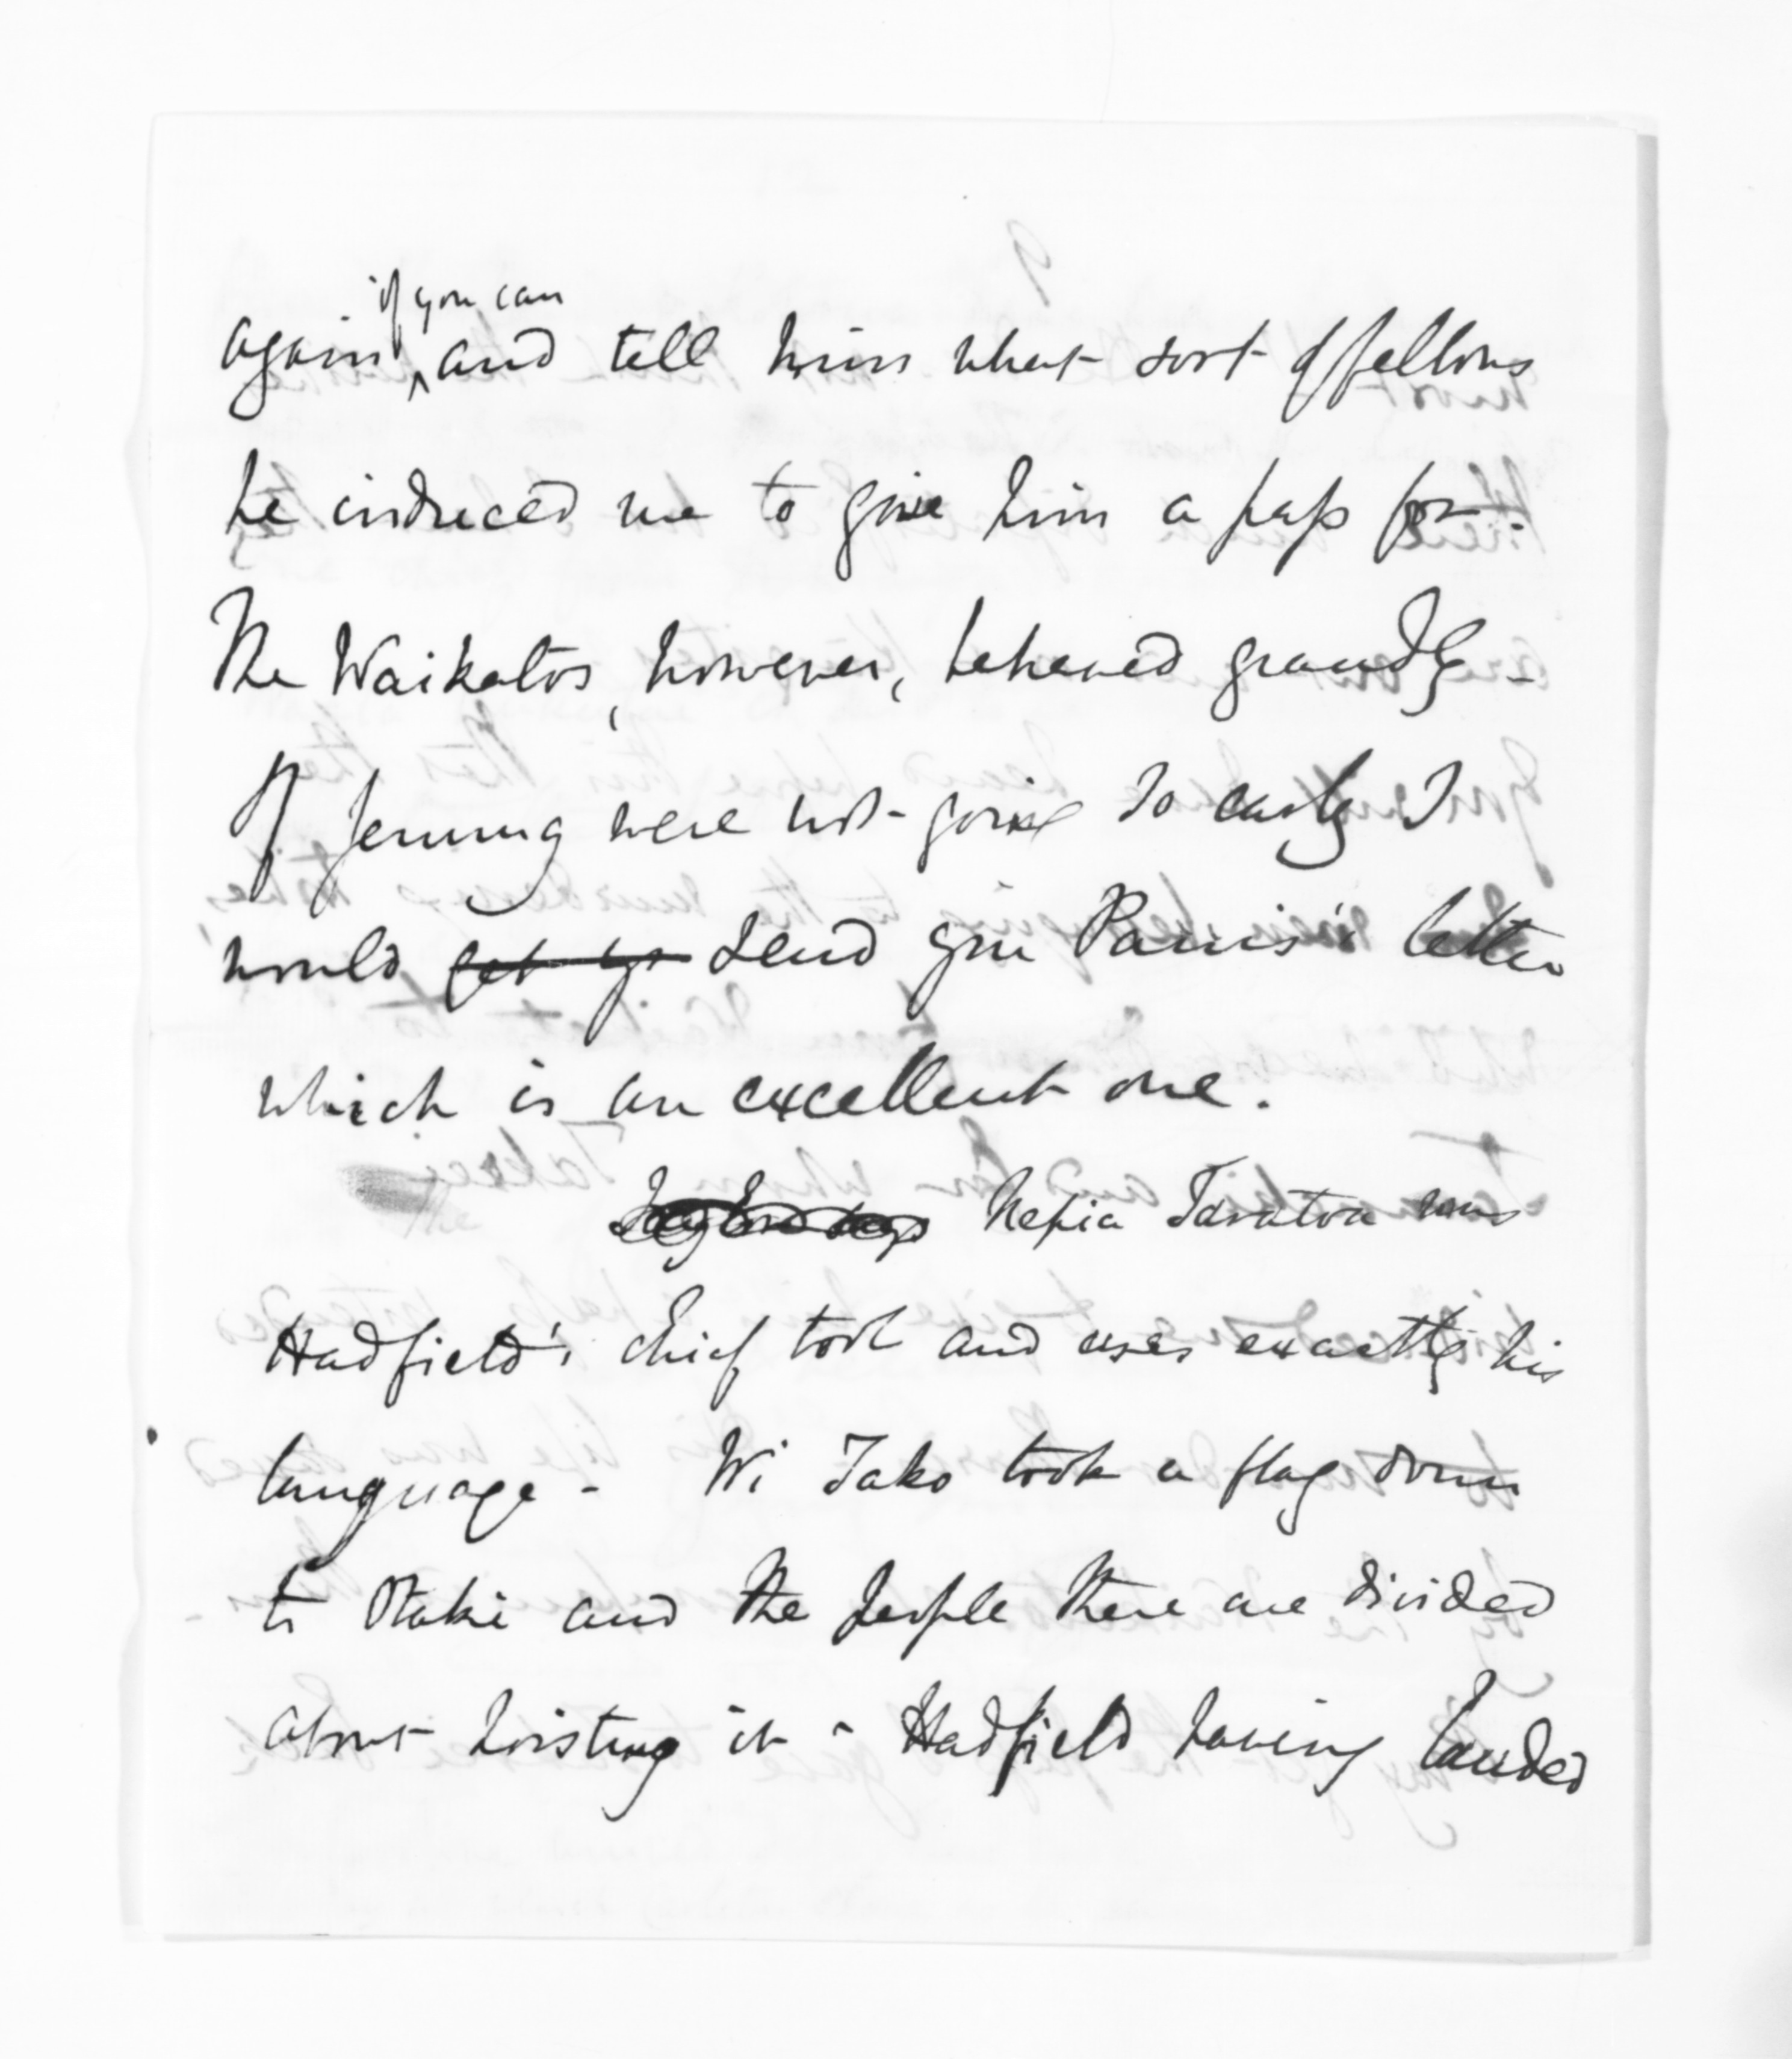 if you can
again, and tell him what sort of fellows
he induced me to give him a pass for.
The Waikatos, however, behaved grandly -
If Jenning were not going so early I
would get yr send you Parris's letter
which is an excellent one.
Nepia Taratoa was
Hadfield's chief tool and uses exactly his
language - Wi Tako took a flag down
to Otaki and the people there are divided
about hoisting it - Hadfield having landed